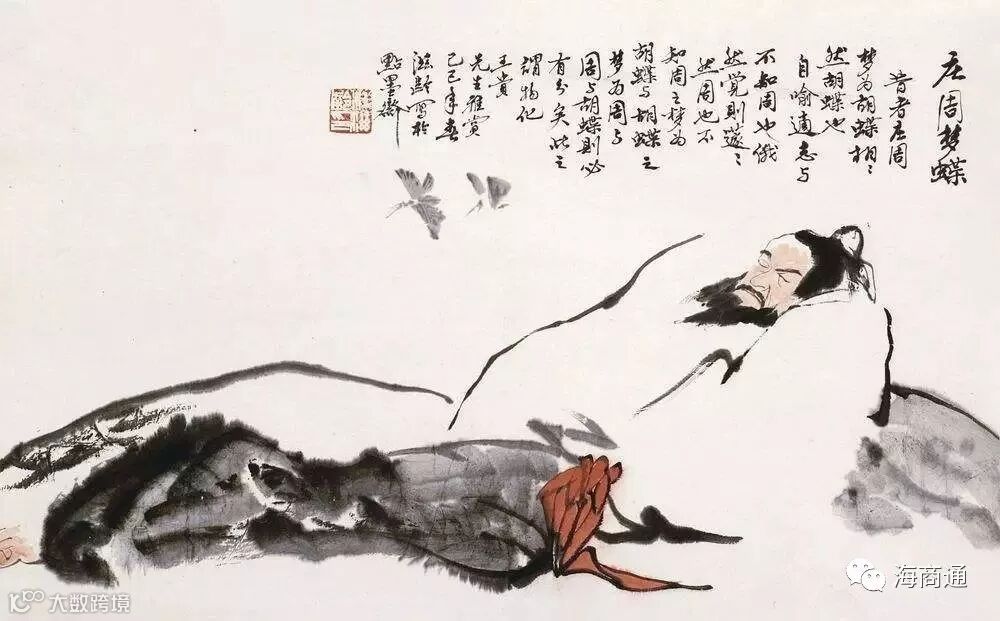 庄周梦蝶
昔者庄周
梦为胡蝶栩〻
然胡蝶也
自喻適志与
不知周也俄
然覺則蘧〻
然周也不
知周之梦为
胡蝶与胡蝶之
梦为周与
周与胡蝶則必
有分矣此之
謂物化
王贵
先生雅赏
己巳年春
滋龄写於
點墨齋
海商通
大数跨境